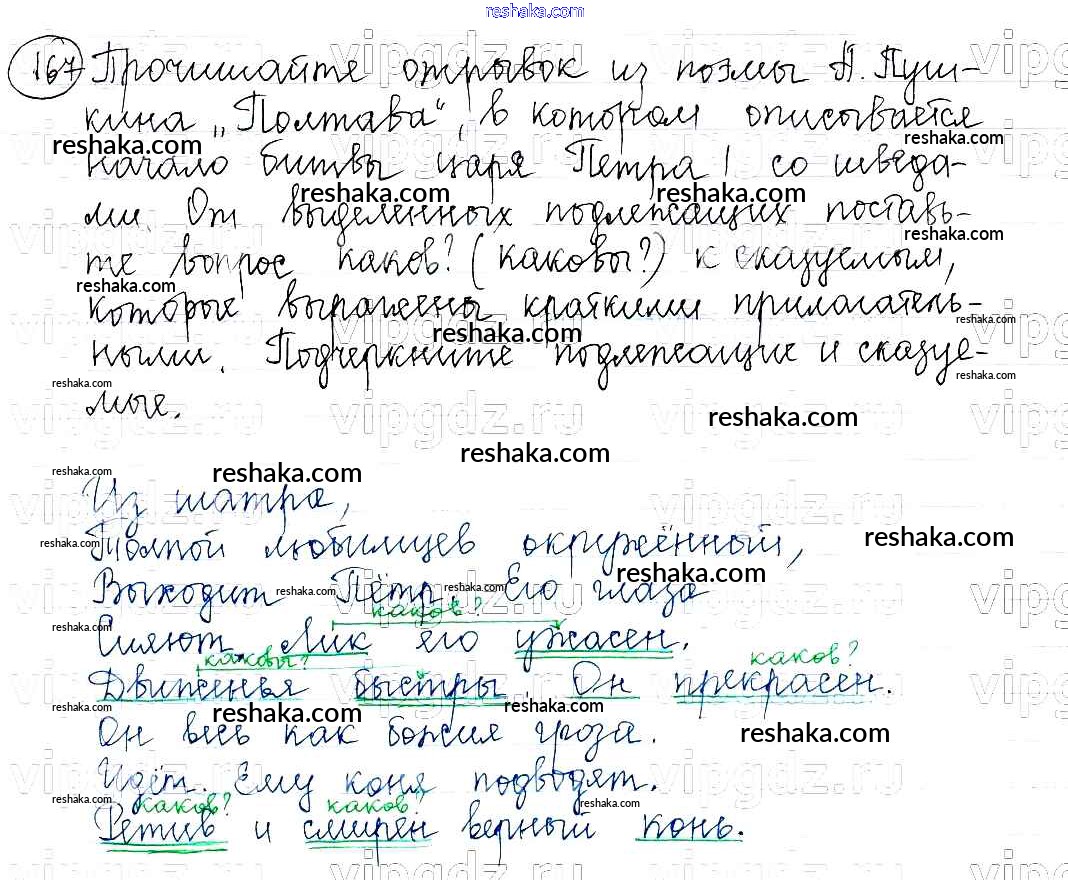 reshaka.com
167 Прочитайте отрывок из поэмы А. Пуш-
кина „Полтава“, в котором описывается
начало битвы царя Петра I со шведа-
ми. От выделенных подлежащих поставь-
те вопрос каков? (каковы?) к сказуемым,
которые выражены краткими прилагатель-
ными. Подчеркните подлежащие и сказуе-
мые.
Из шатра,
Толпой любимцев окружённый,
Выходит Пётр. Его глаза
каков?
Сияют. Лик его ужасен.
каковы? каков?
Движенья быстры. Он прекрасен.
Он весь как божия гроза.
Идёт. Ему коня подводят.
каков? каков?
Ретив и смирен верный конь.